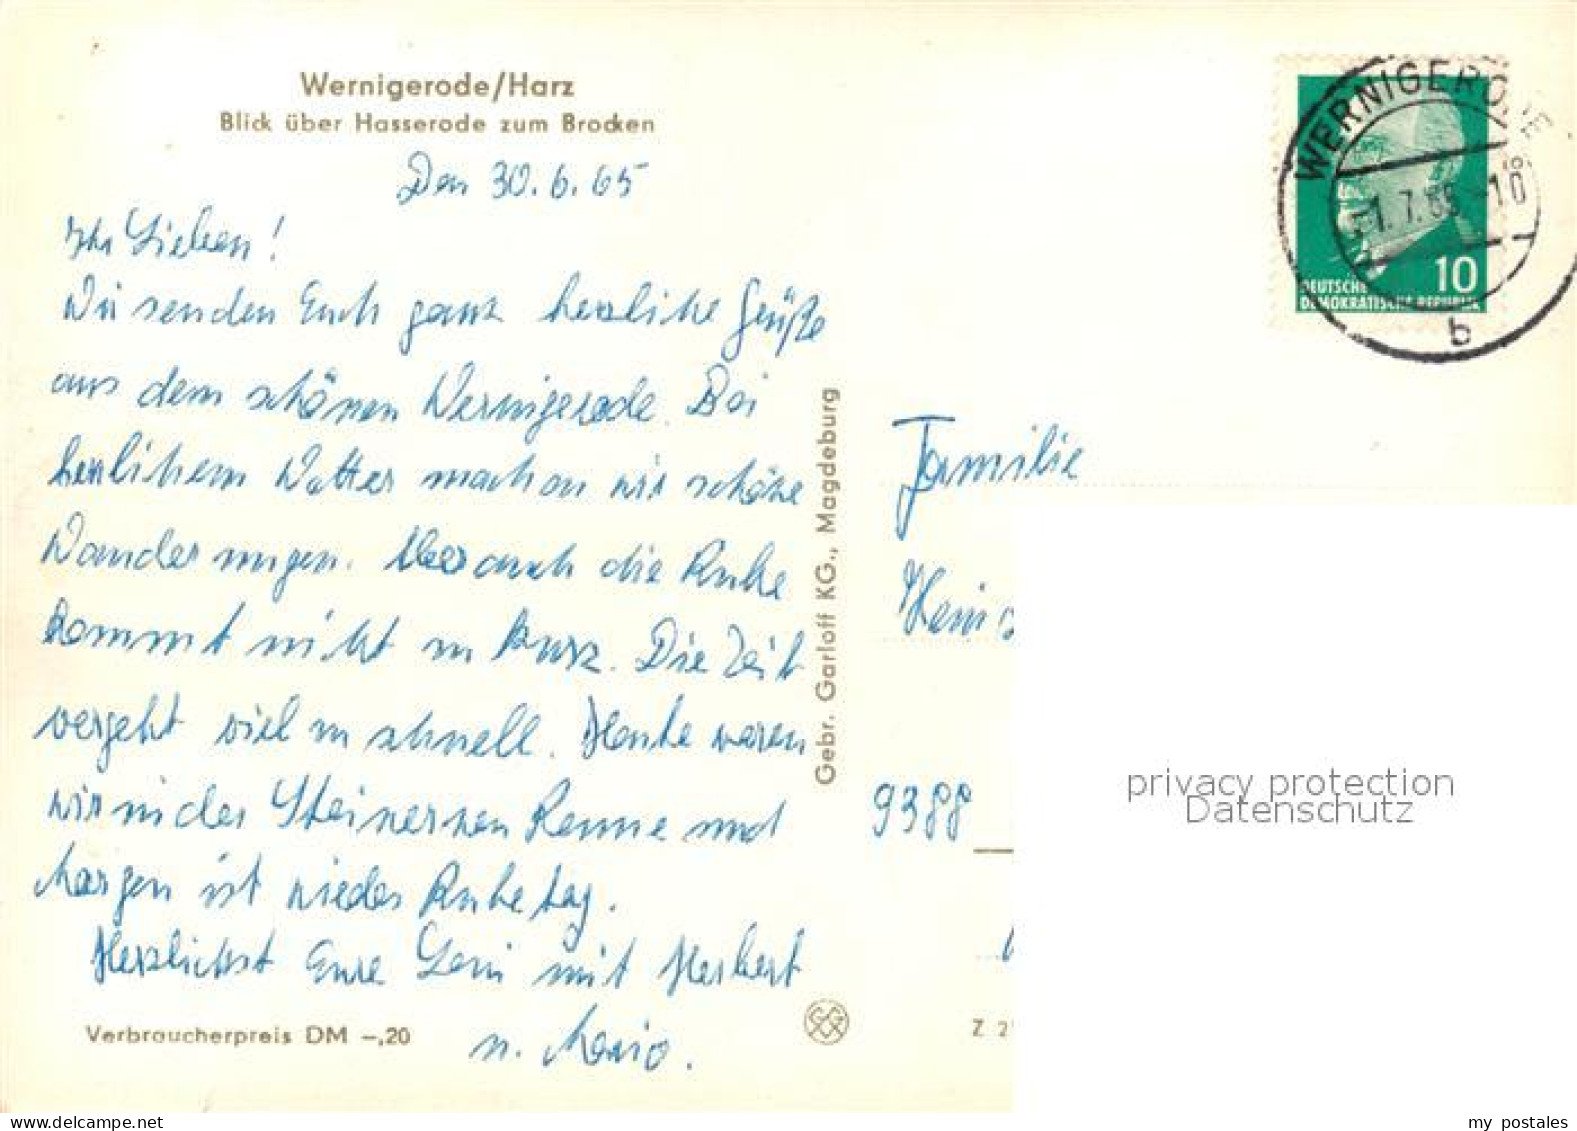 Wernigerode/Harz
Blick über Hasserode zum Brocken
Den 30.6.65
Ihr Lieben!
Wir senden Euch ganz herzliche Grüße
aus dem schönen Wernigerode. Bei
herrlichem Wetter machen wir schöne
Wanderungen. Aber auch die Ruhe
kommt nicht zu kurz. Die Zeit
vergeht viel zu schnell. Heute waren
wir in der Steinernen Renne und
Morgen ist wieder Ruhetag.
Herzlichst Eure Leni mit Herbert
u. Mario.
Verbraucherpreis DM -,20
Gebr. Garloff KG., Magdeburg
WERNIGERODE
-1.7.65-10
b
10
DEUTSCHE
DEMOKRATISCHE REPUBLIK
Familie
9388
Z 2
privacy protection
Datenschutz
my postales